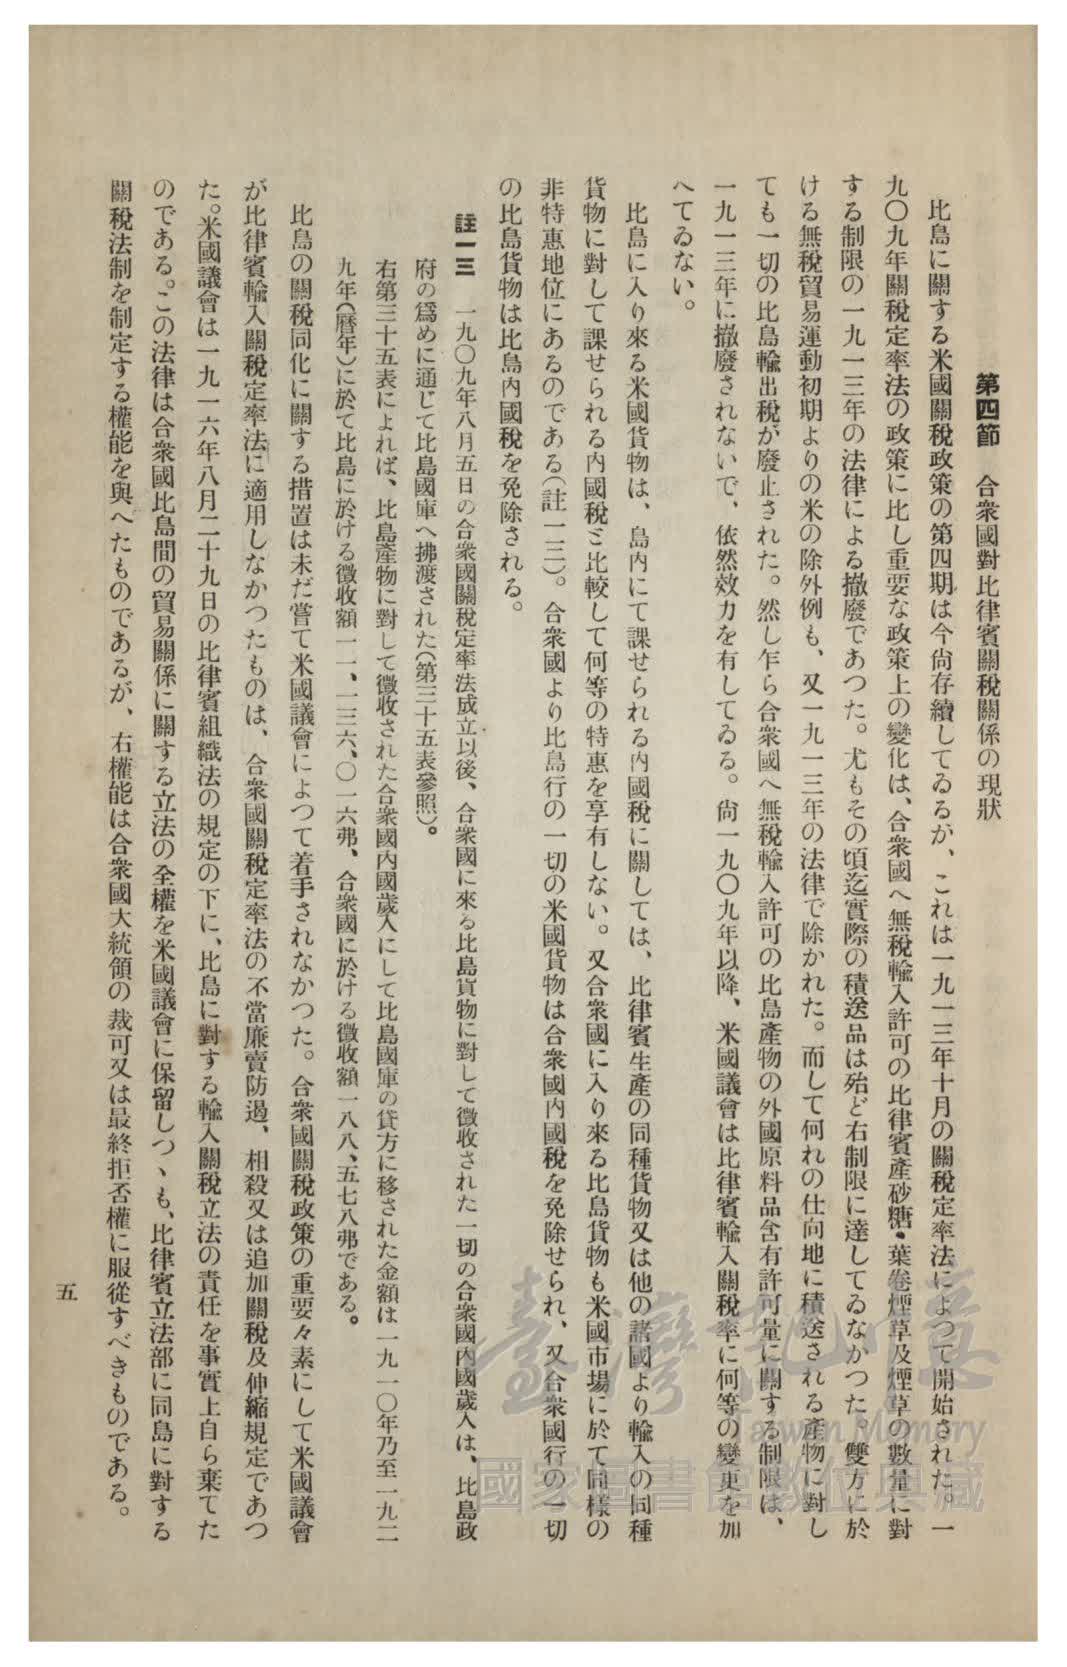 第四節　合衆國對比律賓關稅關係の現狀
比島に關する米國關稅政策の第四期は今尙存續してゐるが、これは一九一三年十月の關稅定率法によつて開始された。一
九〇九年關稅定率法の政策に比し重要な政策上の變化は、合衆國へ無稅輸入許可の比律賓產砂糖・葉卷煙草及煙草の數量に對
する制限の一九一三年の法律による撤廢であつた。尤もその頃迄實際の積送品は殆ど右制限に達してゐなかつた。雙方に於
ける無稅貿易運動初期よりの米の除外例も、又一九一三年の法律で除かれた。而して何れの仕向地に積送される產物に對し
ても一切の比島輸出稅が廢止された。然し乍ら合衆國へ無稅輸入許可の比島產物の外國原料品含有許可量に關する制限は、
一九一三年に撤廢されないで、依然效力を有してゐる。尙一九〇九年以降、米國議會は比律賓輸入關稅率に何等の變更を加
へてゐない。
比島に入り來る米國貨物は、島內にて課せられる內國稅に關しては、比律賓生產の同種貨物又は他の諸國より輸入の同種
貨物に對して課せられる內國稅ミ比較して何等の特惠を享有しない。又合衆國に入り來る比島貨物も米國市場に於て同樣の
非特惠地位にあるのである（註一三）。合衆國より比島行の一切の米國貨物は合衆國內國稅を免除せられ、又合衆國行の一切
の比島貨物は比島內國稅を免除される。
註一三　一九〇九年八月五日の合衆國關稅定率法成立以後、合衆國に來る比島貨物に對して徵收された一切の合衆國內國歲入は、比島政
府の爲めに通じて比島國庫へ拂渡された（第三十五表參照）。
右第三十五表によれば、比島產物に對して徵收された合衆國內國歲入にして比島國庫の貸方に移された金額は一九一〇年乃至一九二
九年（曆年）に於て比島に於ける徵收額一一、一三六、〇一六弗、合衆國に於ける徵收額一八八、五七八弗である。
比島の關稅同化に關する措置は未だ嘗て米國議會によつて着手されなかつた。合衆國關稅政策の重要々素にして米國議會
が比律賓輸入關稅定率法に適用しなかつたものは、合衆國關稅定率法の不當廉賣防遏、相殺又は追加關稅及伸縮規定であつ
た。米國議會は一九一六年八月二十九日の比律賓組織法の規定の下に、比島に對する輸入關稅立法の責任を事實上自ら棄てた
のである。この法律は合衆國比島間の貿易關係に關する立法の全權を米國議會に保留しつゝも、比律賓立法部に同島に對する
關稅法制を制定する權能を與へたものであるが、右權能は合衆國大統領の裁可又は最終拒否權に服從すべきものである。
五
臺灣記憶
Taiwan Memory
國家圖書館數位典藏